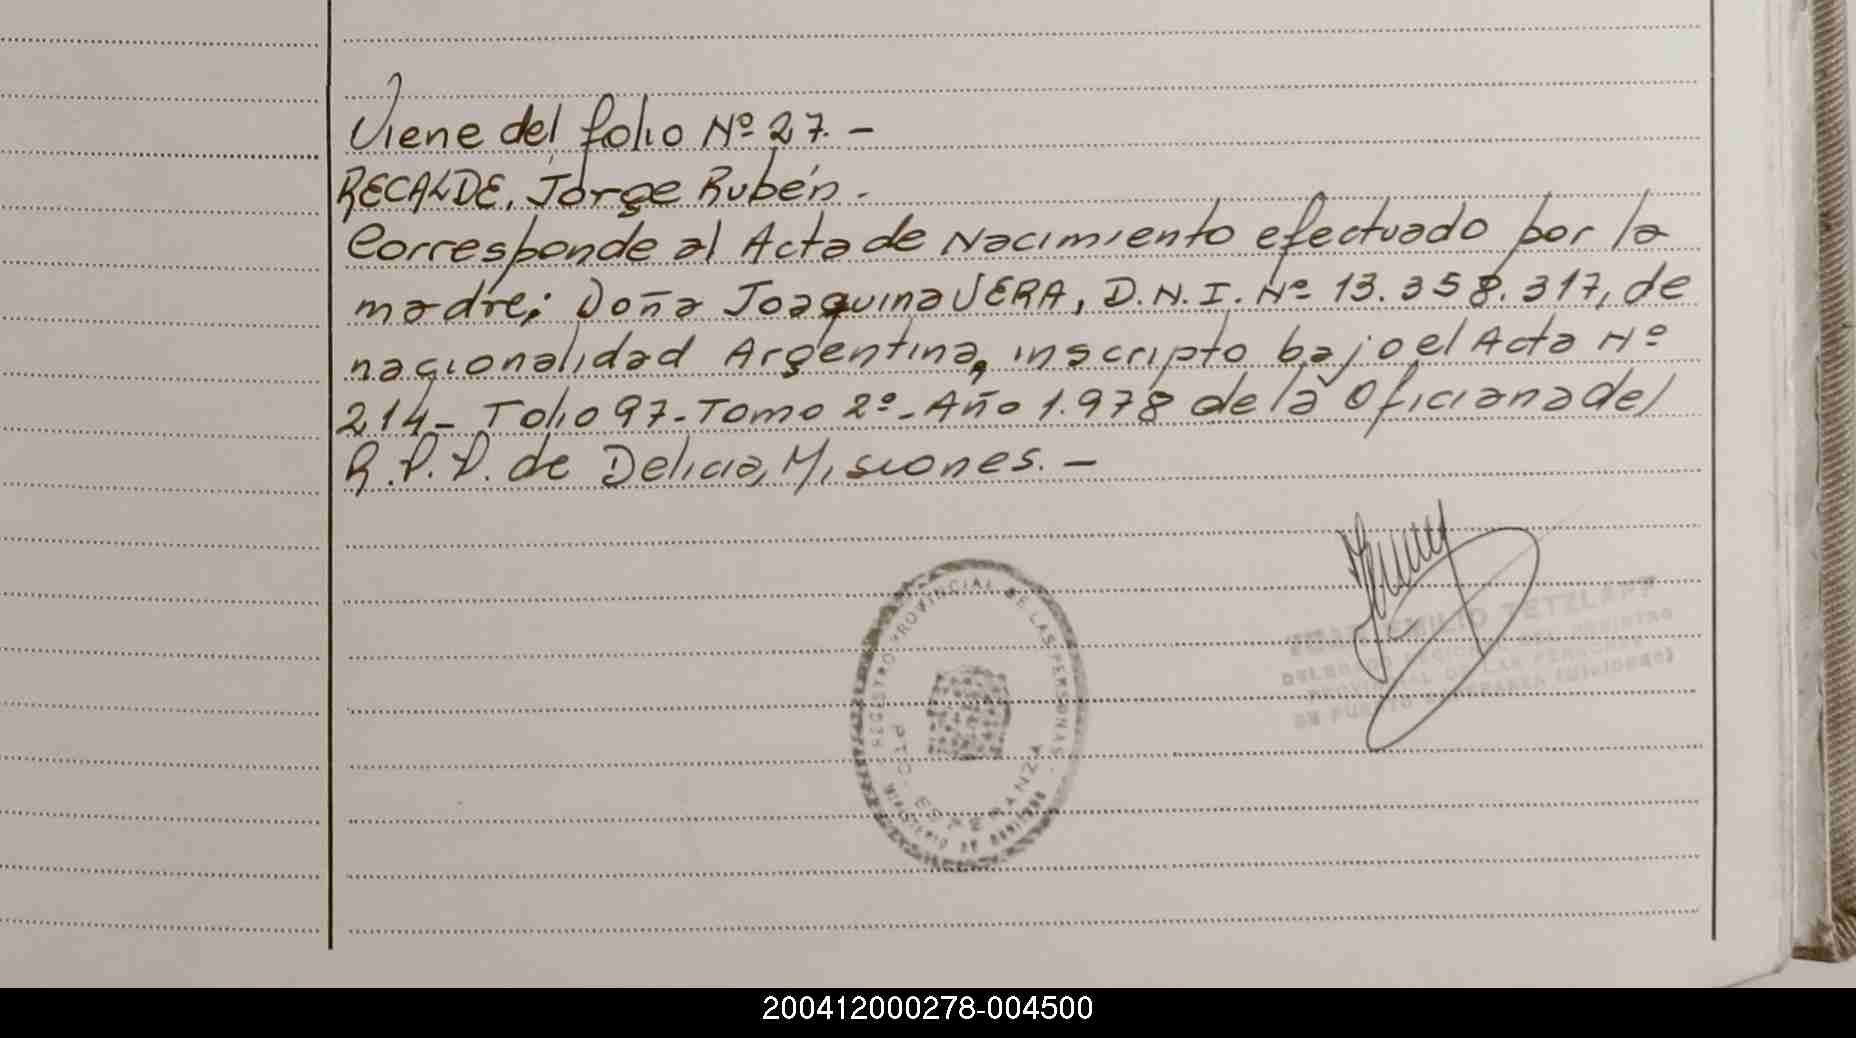 Viene del folio Nº 27. -
RECALDE, Jorge Rubén.
Corresponde al Acta de Nacimiento efectuado por la
madre; Doña Joaquina VERA, D.N.I. Nº 13.358.317, de
nacionalidad Argentina, inscripto bajo el Acta Nº
214- Tolio 97-Tomo 2º-Año 1.978 de la Oficiana del
R.P.P. de Delicia, Misiones. -
REGISTRO PROVINCIAL DE LAS PERSONAS
PTO. ESPERANZA
MINISTERIO DE GOBIERNO
JUAN EMILIO TETZLAFF
DELEGADO REGIONAL DEL REGISTRO
PROVINCIAL DE LAS PERSONAS
DE PUERTO ESPERANZA (Misiones)
200412000278-004500